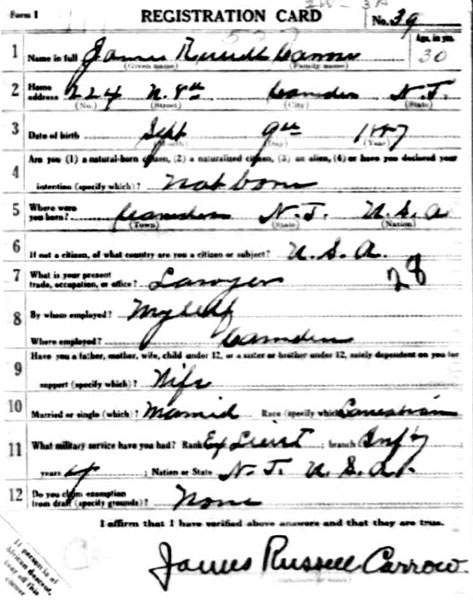 Form 1
REGISTRATION CARD No. 39
Age, in yrs.
1 Name in full James Russell Carrow 30
(Given name) (Family name)
2 Home address 224 N. 8th Camden N.J.
(No.) (City) (State)
3 Date of birth Sept 9th 1887
(Month) (Day) (Year)
Are you (1) a natural-born citizen, (2) a naturalized citizen, (3) an alien, (4) or have you declared your
4 intention (specify which)? Nat born
5 Where were you born? Camden N.J. U.S.A
(Town) (State) (Nation)
6 If not a citizen, of what country are you a citizen or subject? U.S.A.
7 What is your present trade, occupation, or office? Lawyer 28
8 By whom employed? Myself
Where employed? Camden
9 Have you a father, mother, wife, child under 12, or a sister or brother under 12, solely dependent on you for
support (specify which)? Wife
10 Married or single (which)? Married Race (specify which)? Caucasian
11 What military service have you had? Rank Ex Lieut ; branch Inf'y
years 4 ; Nation or State N.J. U.S.A.
12 Do you claim exemption from draft (specify grounds)? None
I affirm that I have verified above answers and that they are true.
James Russell Carrow
If person is of
African descent,
tear off this
corner